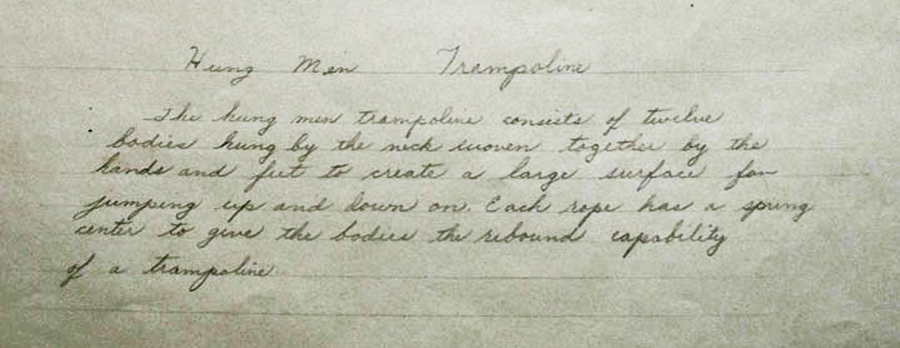 Hung Men Trampoline
The hung men trampoline consists of twelve
bodies hung by the neck woven together by the
hands and feet to create a large surface for
jumping up and down on. Each rope has a spring
center to give the bodies the rebound capability
of a trampoline